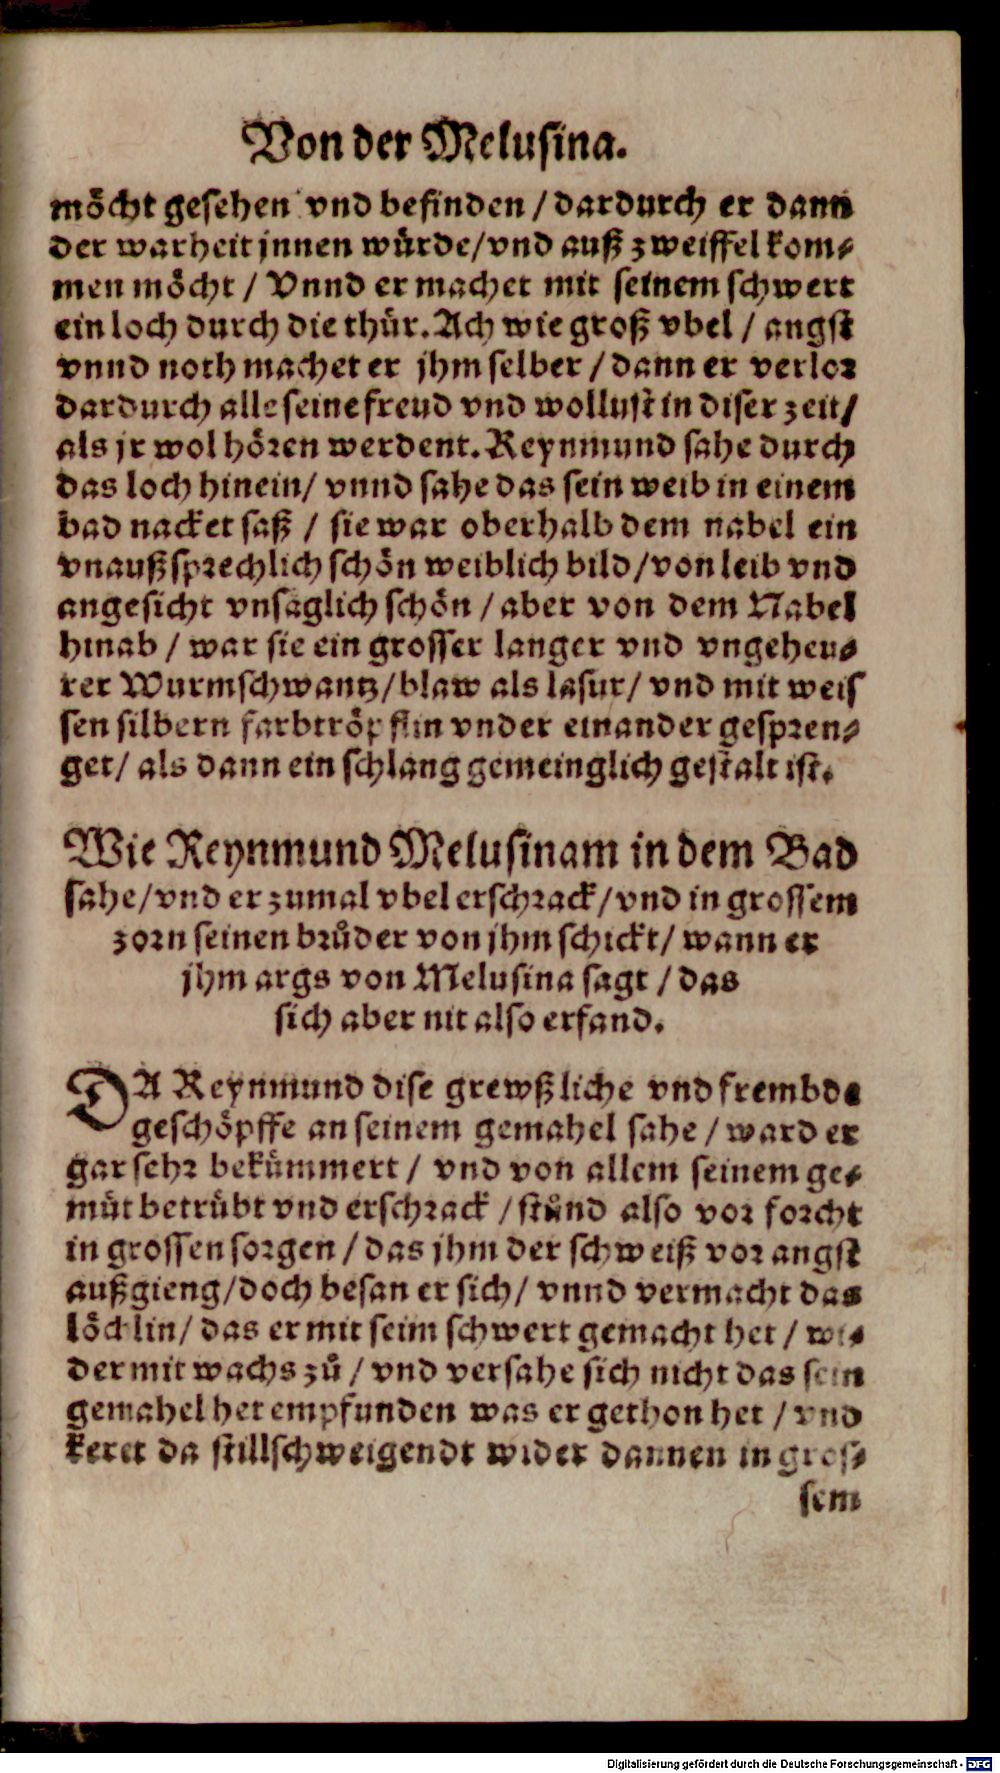 Von der Melusina.
möcht gesehen vnd befinden / dardurch er dann
der warheit jnnen würde/vnd auß zweiffel kom⸗
men möcht / Vnnd er machet mit seinem schwert
ein loch durch die thür. Ach wie groß vbel / angst
vnnd noth machet er jhm selber / dann er verlor
dardurch alle seine freud vnd wollust in diser zeit/
als jr wol hören werdent. Reynmund sahe durch
das loch hinein/ vnnd sahe das sein weib in einem
bad nacket saß / sie war oberhalb dem nabel ein
vnaußsprechlich schön weiblich bild/von leib vnd
angesicht vnsaglich schön / aber von dem Nabel
hinab / war sie ein grosser langer vnd vngeheu⸗
rer Wurmschwantz/blaw als lasur/ vnd mit weis
sen silbern farbtröpflin vnder einander gespren⸗
get/ als dann ein schlang gemeinglich gestalt ist.
Wie Reynmund Melusinam in dem Bad
sahe/vnd er zumal vbel erschrack/vnd in grossem
zorn seinen brůder von jhm schickt/ wann er
jhm args von Melusina sagt / das
sich aber nit also erfand.
DA Reynmund dise grewßliche vnd frembde
geschöpffe an seinem gemahel sahe / ward er
gar sehr bekümmert / vnd von allem seinem ge⸗
müt betrübt vnd erschrack / stůnd also vor forcht
in grossen sorgen / das jhm der schweiß vor angst
außgieng/doch besan er sich/ vnnd vermacht das
löchlin/ das er mit seim schwert gemacht het / wi⸗
der mit wachs zů / vnd versahe sich nicht das sein
gemahel het empfunden was er gethon het / vnd
keret da stillschweigendt wider dannen in gros⸗
sem
Digitalisierung gefördert durch die Deutsche Forschungsgemeinschaft - DFG